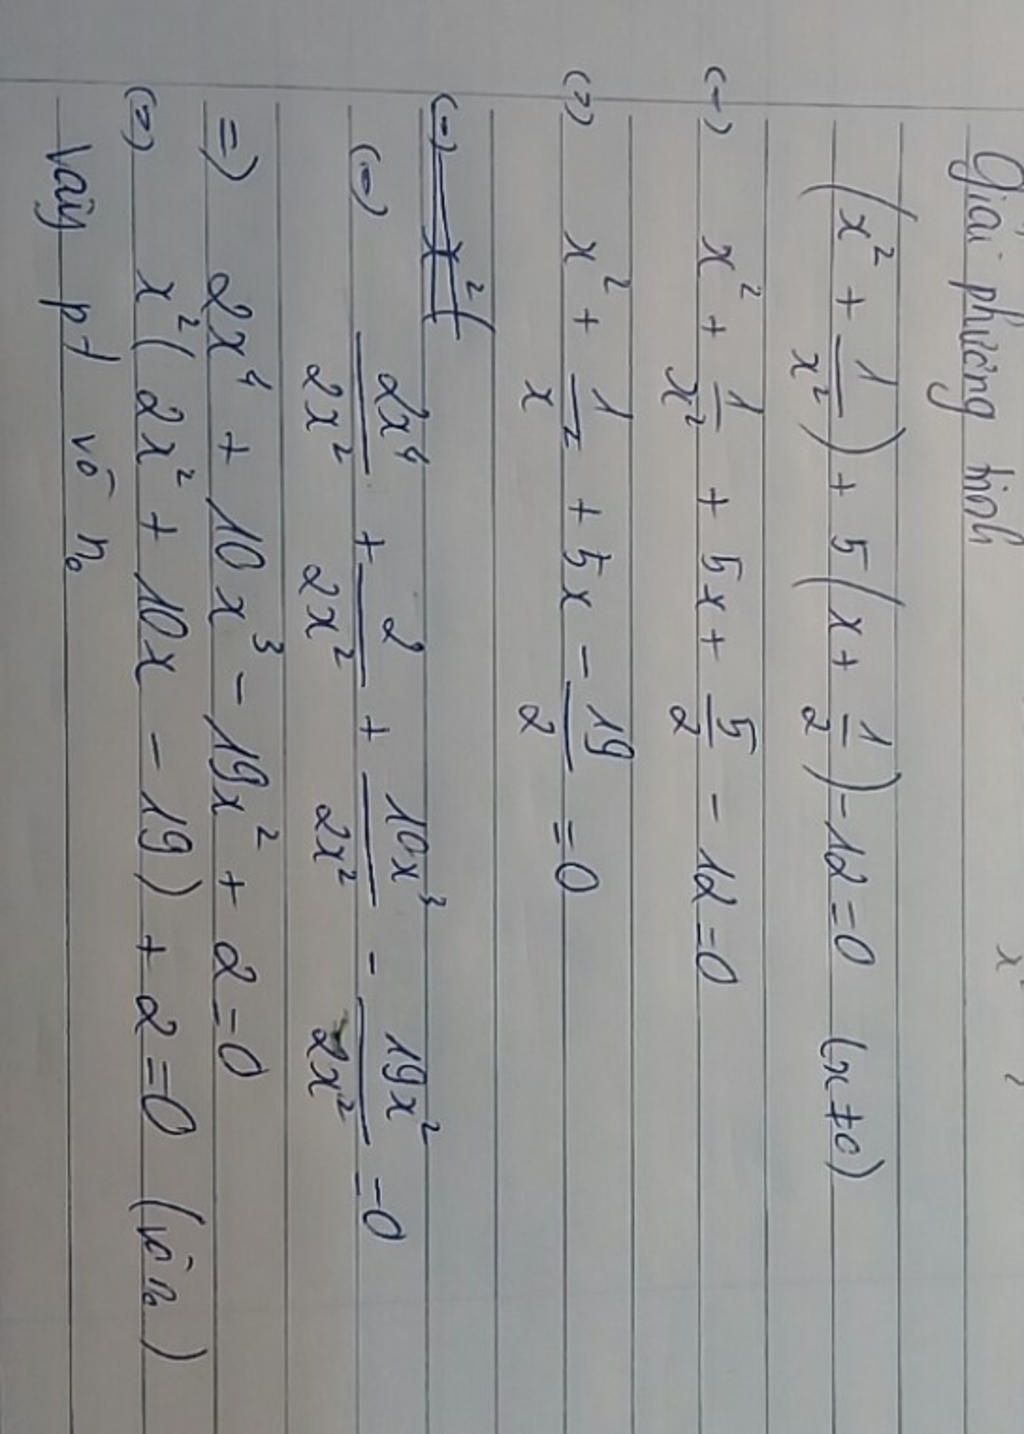 Giải phương trình
(x² + 1/x²) + 5(x + 1/2) - 12 = 0 (x ≠ 0)
(=) x² + 1/x² + 5x + 5/2 - 12 = 0
(=) x² + 1/x² + 5x - 19/2 = 0
(=) 2x⁴/2x² + 2/2x² + 10x³/2x² - 19x²/2x² = 0
=) 2x⁴ + 10x³ - 19x² + 2 = 0
(=) x²(2x² + 10x - 19) + 2 = 0 (vô n₀)
Vậy pt vô n₀